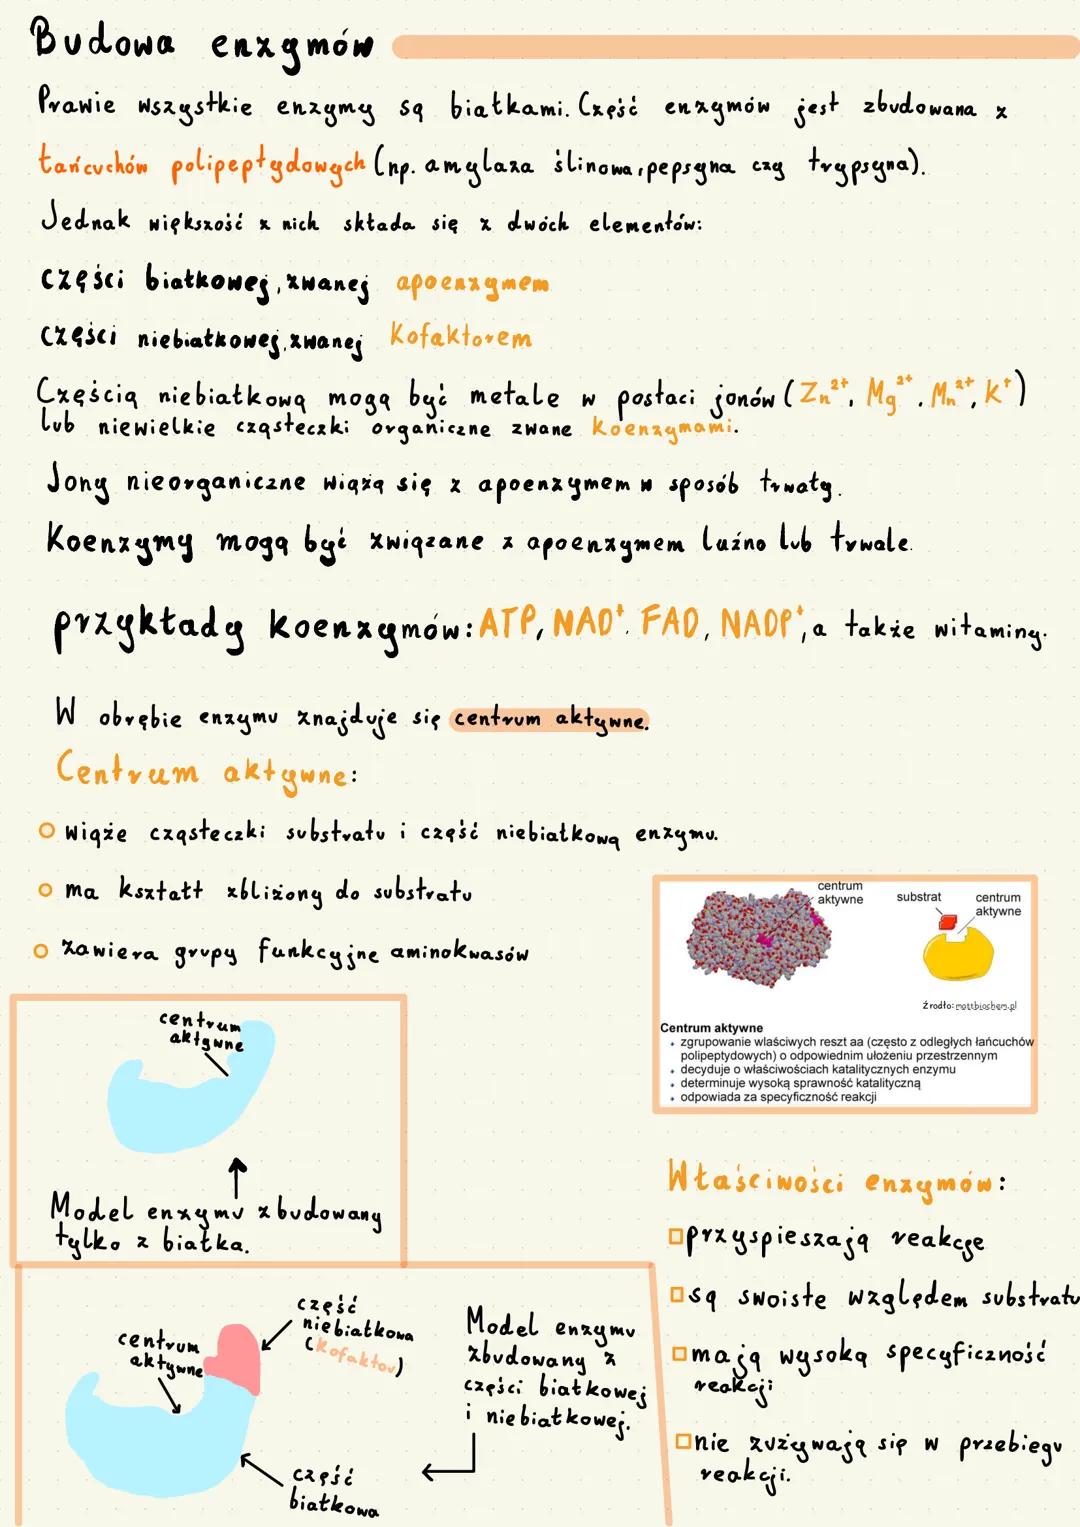 Budowa enzymów
Prawie wszystkie enzymy są białkami. Część enzymów jest zbudowana z
łańcuchów polipeptydowych (np. amylaza ślinowa, pepsyna czy trypsyna).
Jednak większość z nich składa się z dwóch elementów:
części białkowej, zwanej apoenzymem
części niebiałkowej, zwanej kofaktorem
Częścią niebiałkową mogą być metale w postaci jonów (Zn²⁺, Mg²⁺, Mn²⁺, K⁺)
lub niewielkie cząsteczki organiczne zwane koenzymami.
Jony nieorganiczne wiążą się z apoenzymem w sposób trwały.
Koenzymy mogą być związane z apoenzymem luźno lub trwale.
przykłady koenzymów: ATP, NAD⁺, FAD, NADP⁺, a także witaminy.
W obrębie enzymu znajduje się centrum aktywne.
Centrum aktywne:
wiąże cząsteczki substratu i część niebiałkową enzymu.
ma kształt zbliżony do substratu
zawiera grupy funkcyjne aminokwasów
centrum
aktywne
substrat
centrum
aktywne
Źródło: mattbiochem.pl
Centrum aktywne
zgrupowanie właściwych reszt aa (często z odległych łańcuchów
polipeptydowych) o odpowiednim ułożeniu przestrzennym
decyduje o właściwościach katalitycznych enzymu
determinuje wysoką sprawność katalityczną
odpowiada za specyficzność reakcji
centrum
aktywne
Model enzymu zbudowany
tylko z białka.
centrum
aktywne
część
niebiałkowa
(kofaktor)
część
białkowa
Model enzymu
zbudowany z
części białkowej
i niebiałkowej.
Właściwości enzymów:
przyspieszają reakcje
są swoiste względem substratu
mają wysoką specyficzność
reakcji
nie zużywają się w przebiegu
reakcji.